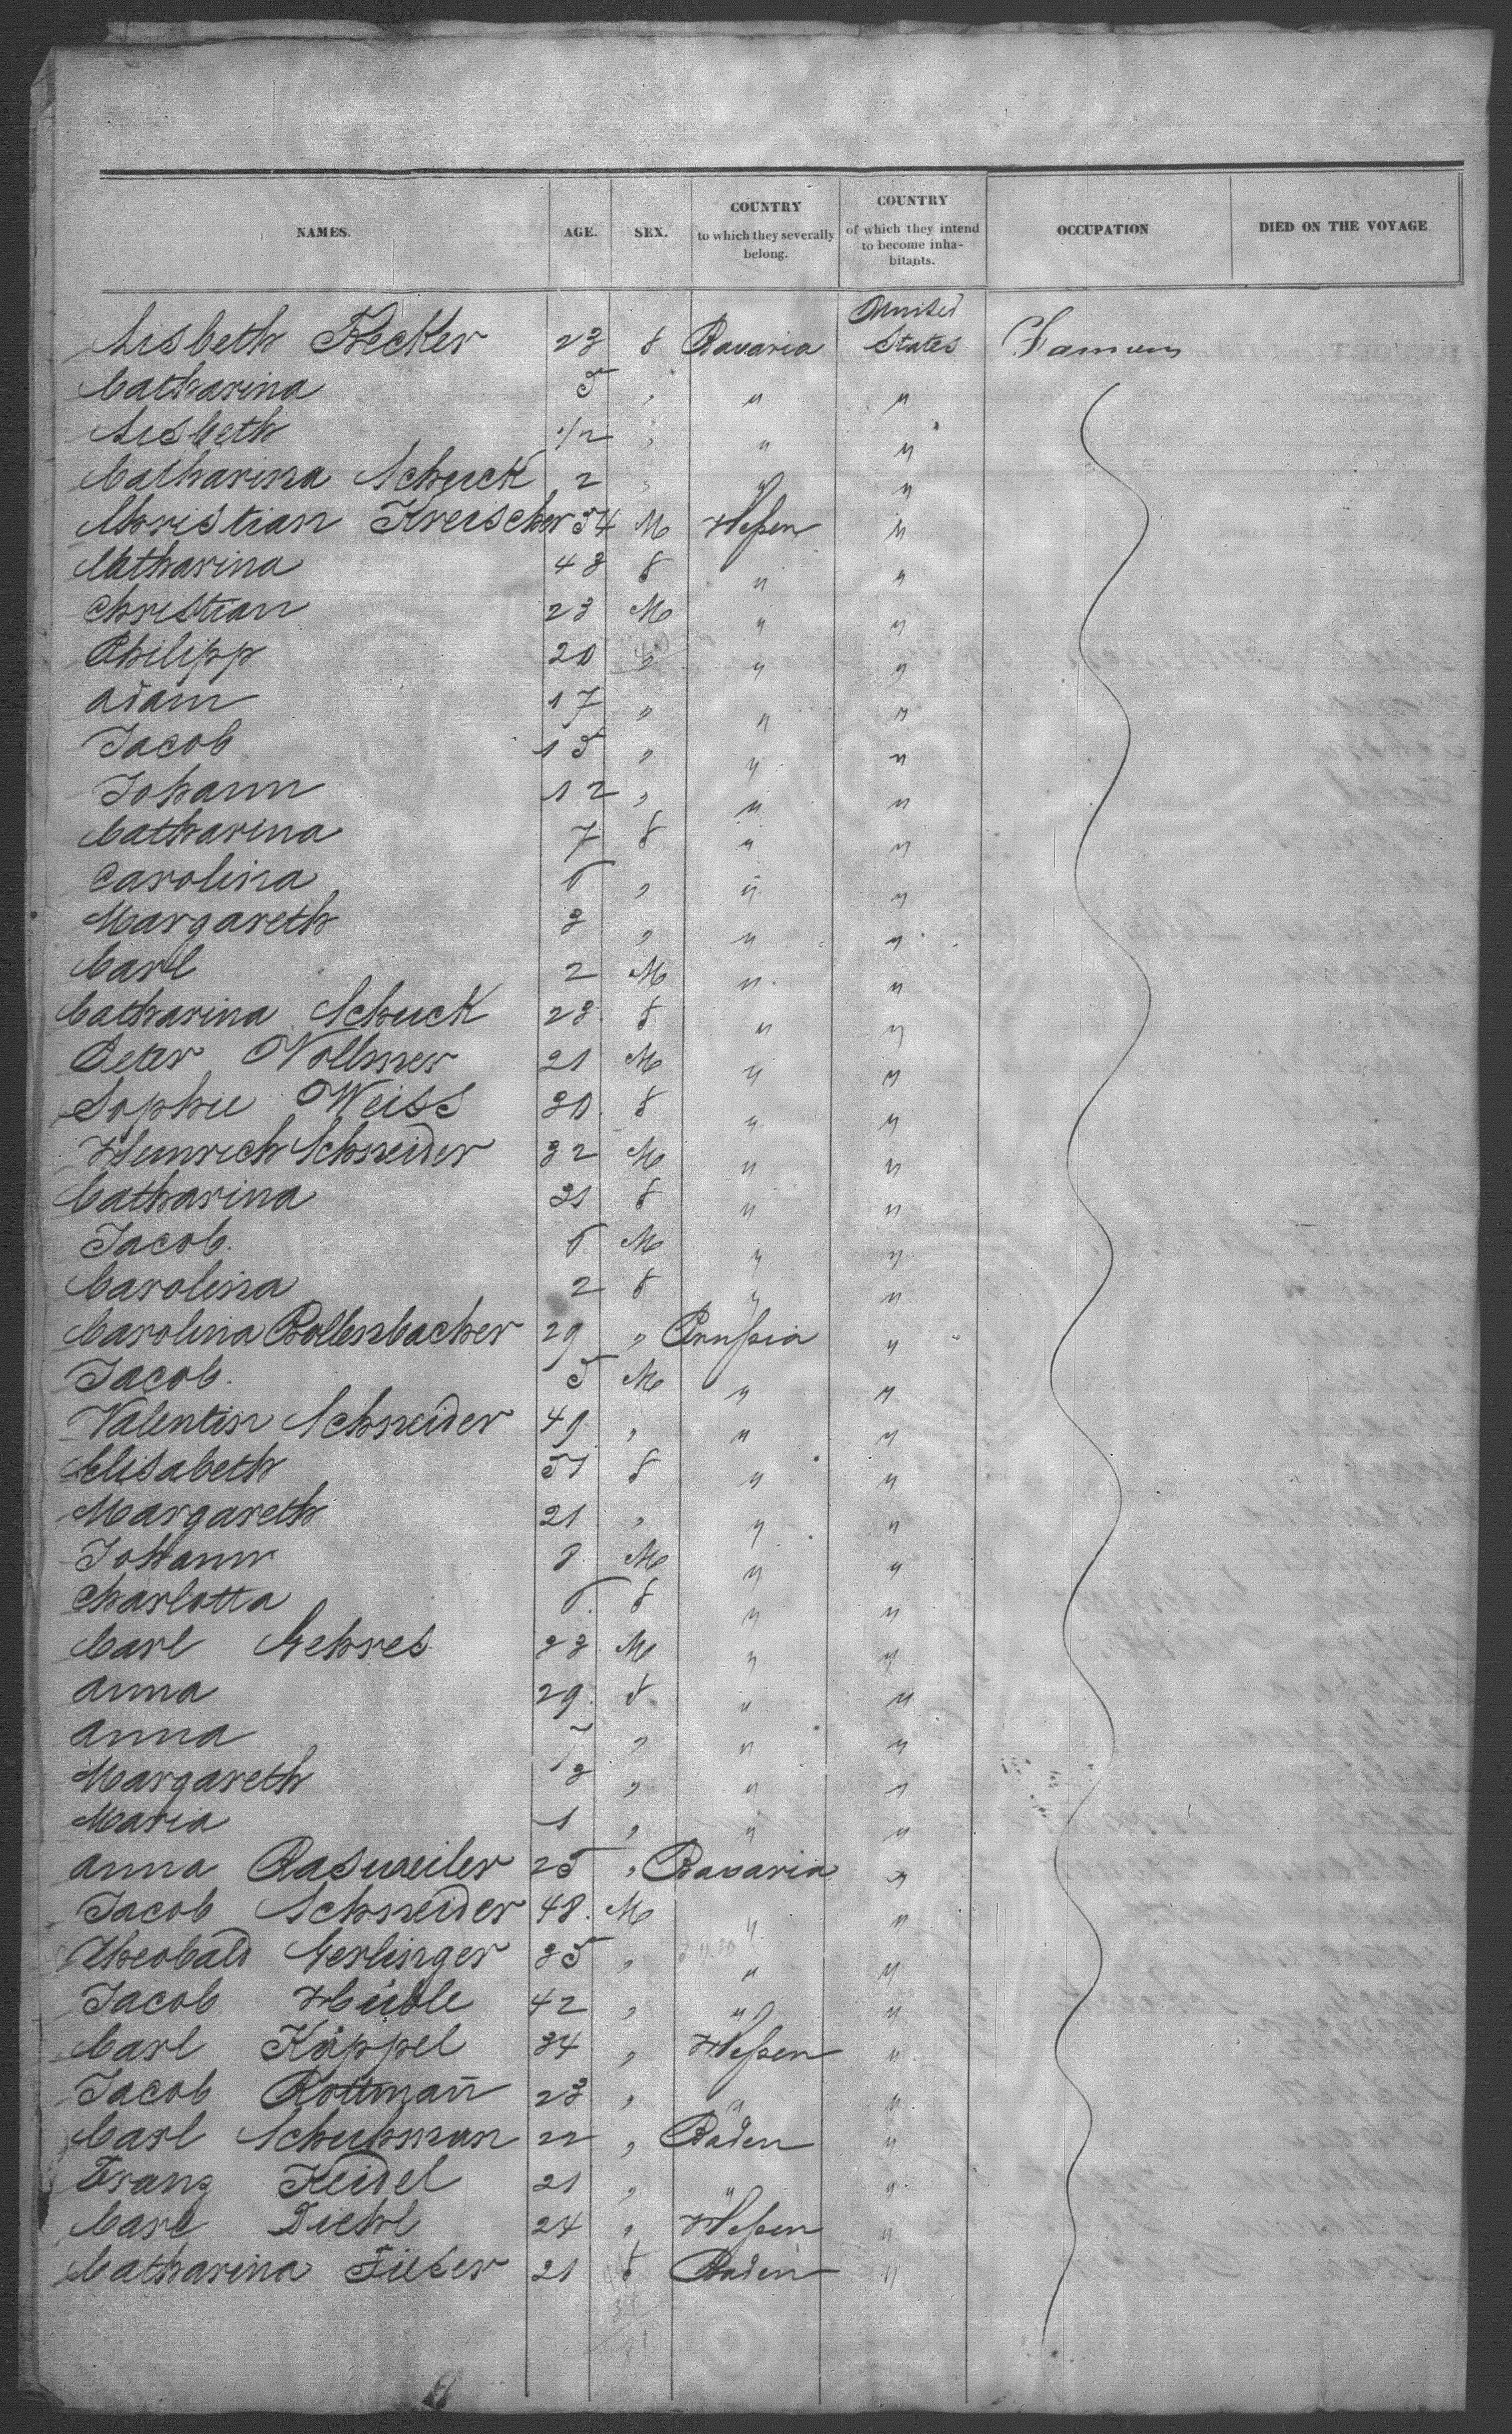 NAMES. AGE. SEX. COUNTRY to which they severally belong. COUNTRY of which they intend to become inhabitants. OCCUPATION DIED ON THE VOYAGE
Lisbeth Becker 23 f Bavaria United States
Catharina 5 " " "
Lisbeth 1/2 " " "
Catharina Schuck 2 " " "
Christian Kreischer 54 M Heßen "
Catharina 43 f " "
Christian 23 M " "
Philipp 20 " " "
Adam 17 " " "
Jacob 15 " " "
Johann 12 " " "
Catharina 7 f " "
Carolina 6 " " "
Margareth 3 " " "
Carl 2 M " "
Catharina Schuck 23 f " "
Peter Vollmer 21 M " "
Sophie Weiss 30 f " "
Heinrich Schneider 32 M " "
Catharina 31 f " "
Jacob. 6 M " "
Carolina 2 f " "
Carolina Bollenbacher 29 " Prußia "
Jacob. 5 M " "
Valentin Schneider 49 " " "
Elisabeth 51 f " "
Margareth 21 " " "
Johann 8 M " "
Charlotta 6 f " "
Carl Gehres 33 M " "
Anna 29 f " "
Anna " " "
Margareth 3 " " "
Maria 1 " " "
Anna Rasweiler 25 " Bavaria "
Jacob Schneider 48 M " "
Theobald Gerlinger 35 " " "
Jacob Hüble 42 " " "
Carl Käppel 34 " Heßen "
Jacob Rottmañ 23 " " "
Carl Schuhman 22 " Baden "
Franz Keidel 21 " " "
Carl Diehl 24 " Heßen "
Catharina 21 f Baden "